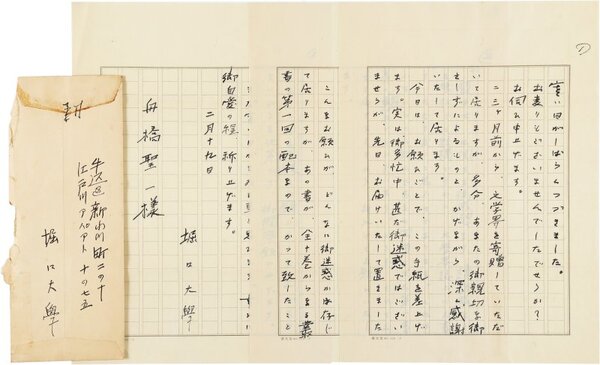 寒い日がしばらくつづきました。
お変りございませんでしたでせうか?
お伺ひ申上げます。
二三ヶ月前から、文学界を寄贈していただ
いて居りますが、多分、あなたの御親切な御
さしずによるものと、かげながら、深く感謝
いたして居ります。
今日は、お願ひごとで、この手紙を差上げ
ます。実は御多忙中、甚だ御迷惑ではござい
ませうが、先日、お届けいたして置きました
こんなお願ひが、どんなに御迷惑かは存じ
て居りますが、あの書が、全十巻からなる叢
書の第一回の配本なので、かつて致したこと
御自愛の程、祈り上げます。
二月十九日
堀口大學
舟橋聖一様
封
牛込区新小川町二の十
江戸川アパアト 十の七五
堀口大學